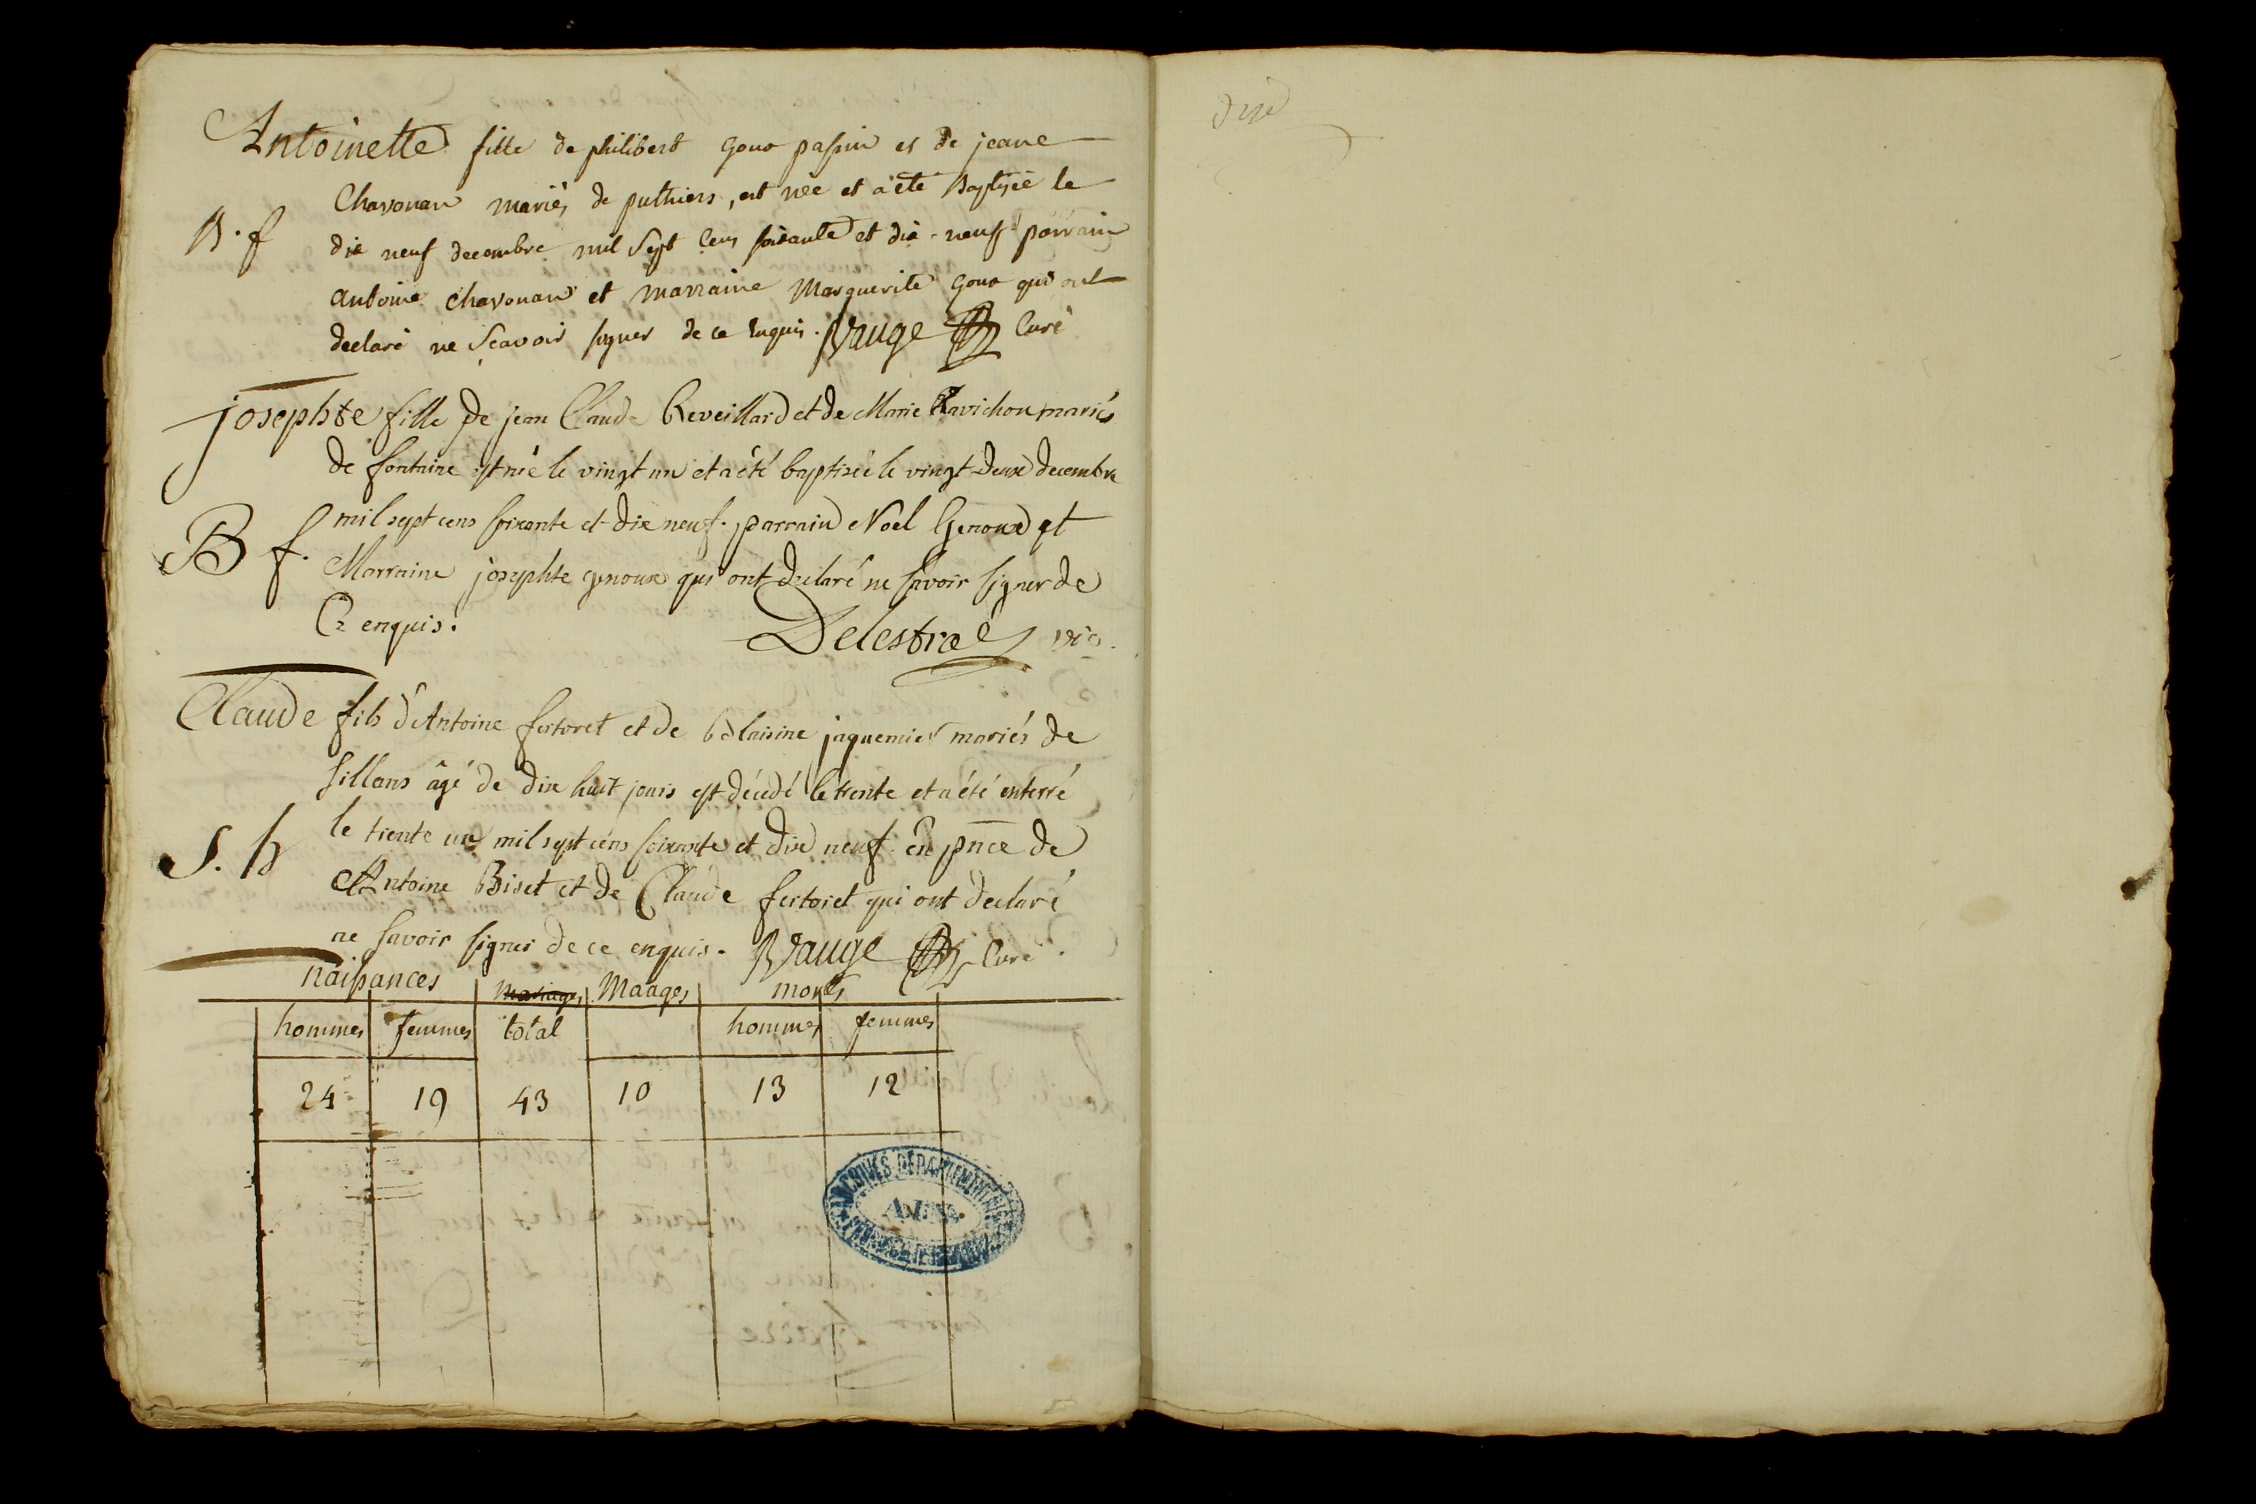 Antoinette fille de philibert goux passin et de jeane
Chavonan mariés de puthiers, est née et a été Baptisée le
B. f
dix neuf decembre mil sept cens soixante et dix-neuf parrain
antoine chavonan et marraine Marguerite goux qui ont
declaré ne scavoir signer de ce enquis. Vauge Curé
josephte fille de jean Claude Reveillard et de Marie Ravichon mariés
de fontaine est née le vingt un et a été baptisée le vingt-deux decembre
B f.
mil sept cens soixante et dix neuf. parrain Noel Genoux et
Marraine josephte genoux qui ont declaré ne savoir signer de
Ce enquis. Delestra vic.
Claude fils d'Antoine fertoret et de Blaisine jaquemier mariés de
sillans âgé de dix huit jours est décédé le trente et a été enterré
S. h
le trente un mil sept cens soixante et dix neuf en pnce de
Antoine Biset et de Claude fertoret qui ont declaré
ne savoir signer de ce enquis. Vauge Curé.
naissances mariages Maages morts
hommes femmes total hommes femmes
24 19 43 10 13 12
ARCHIVES DÉPARTEMENTALES
AIN